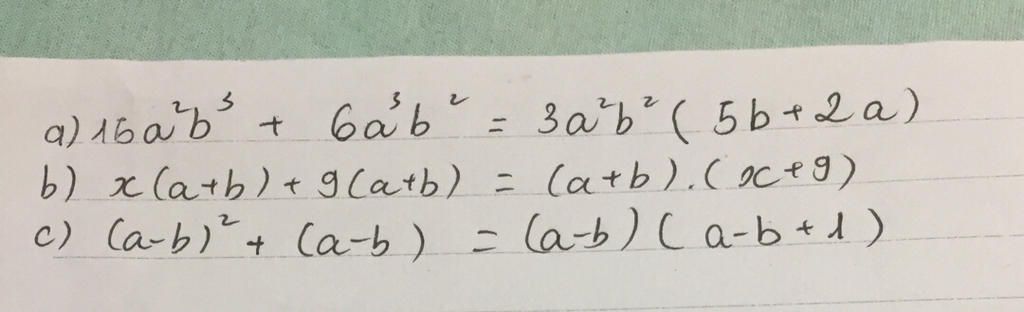 a) 15a²b³ + 6a³b² = 3a²b² ( 5b + 2a )
b) x(a+b) + 9(a+b) = (a+b).( x+9)
c) (a-b)² + (a-b) = (a-b) ( a-b + 1 )